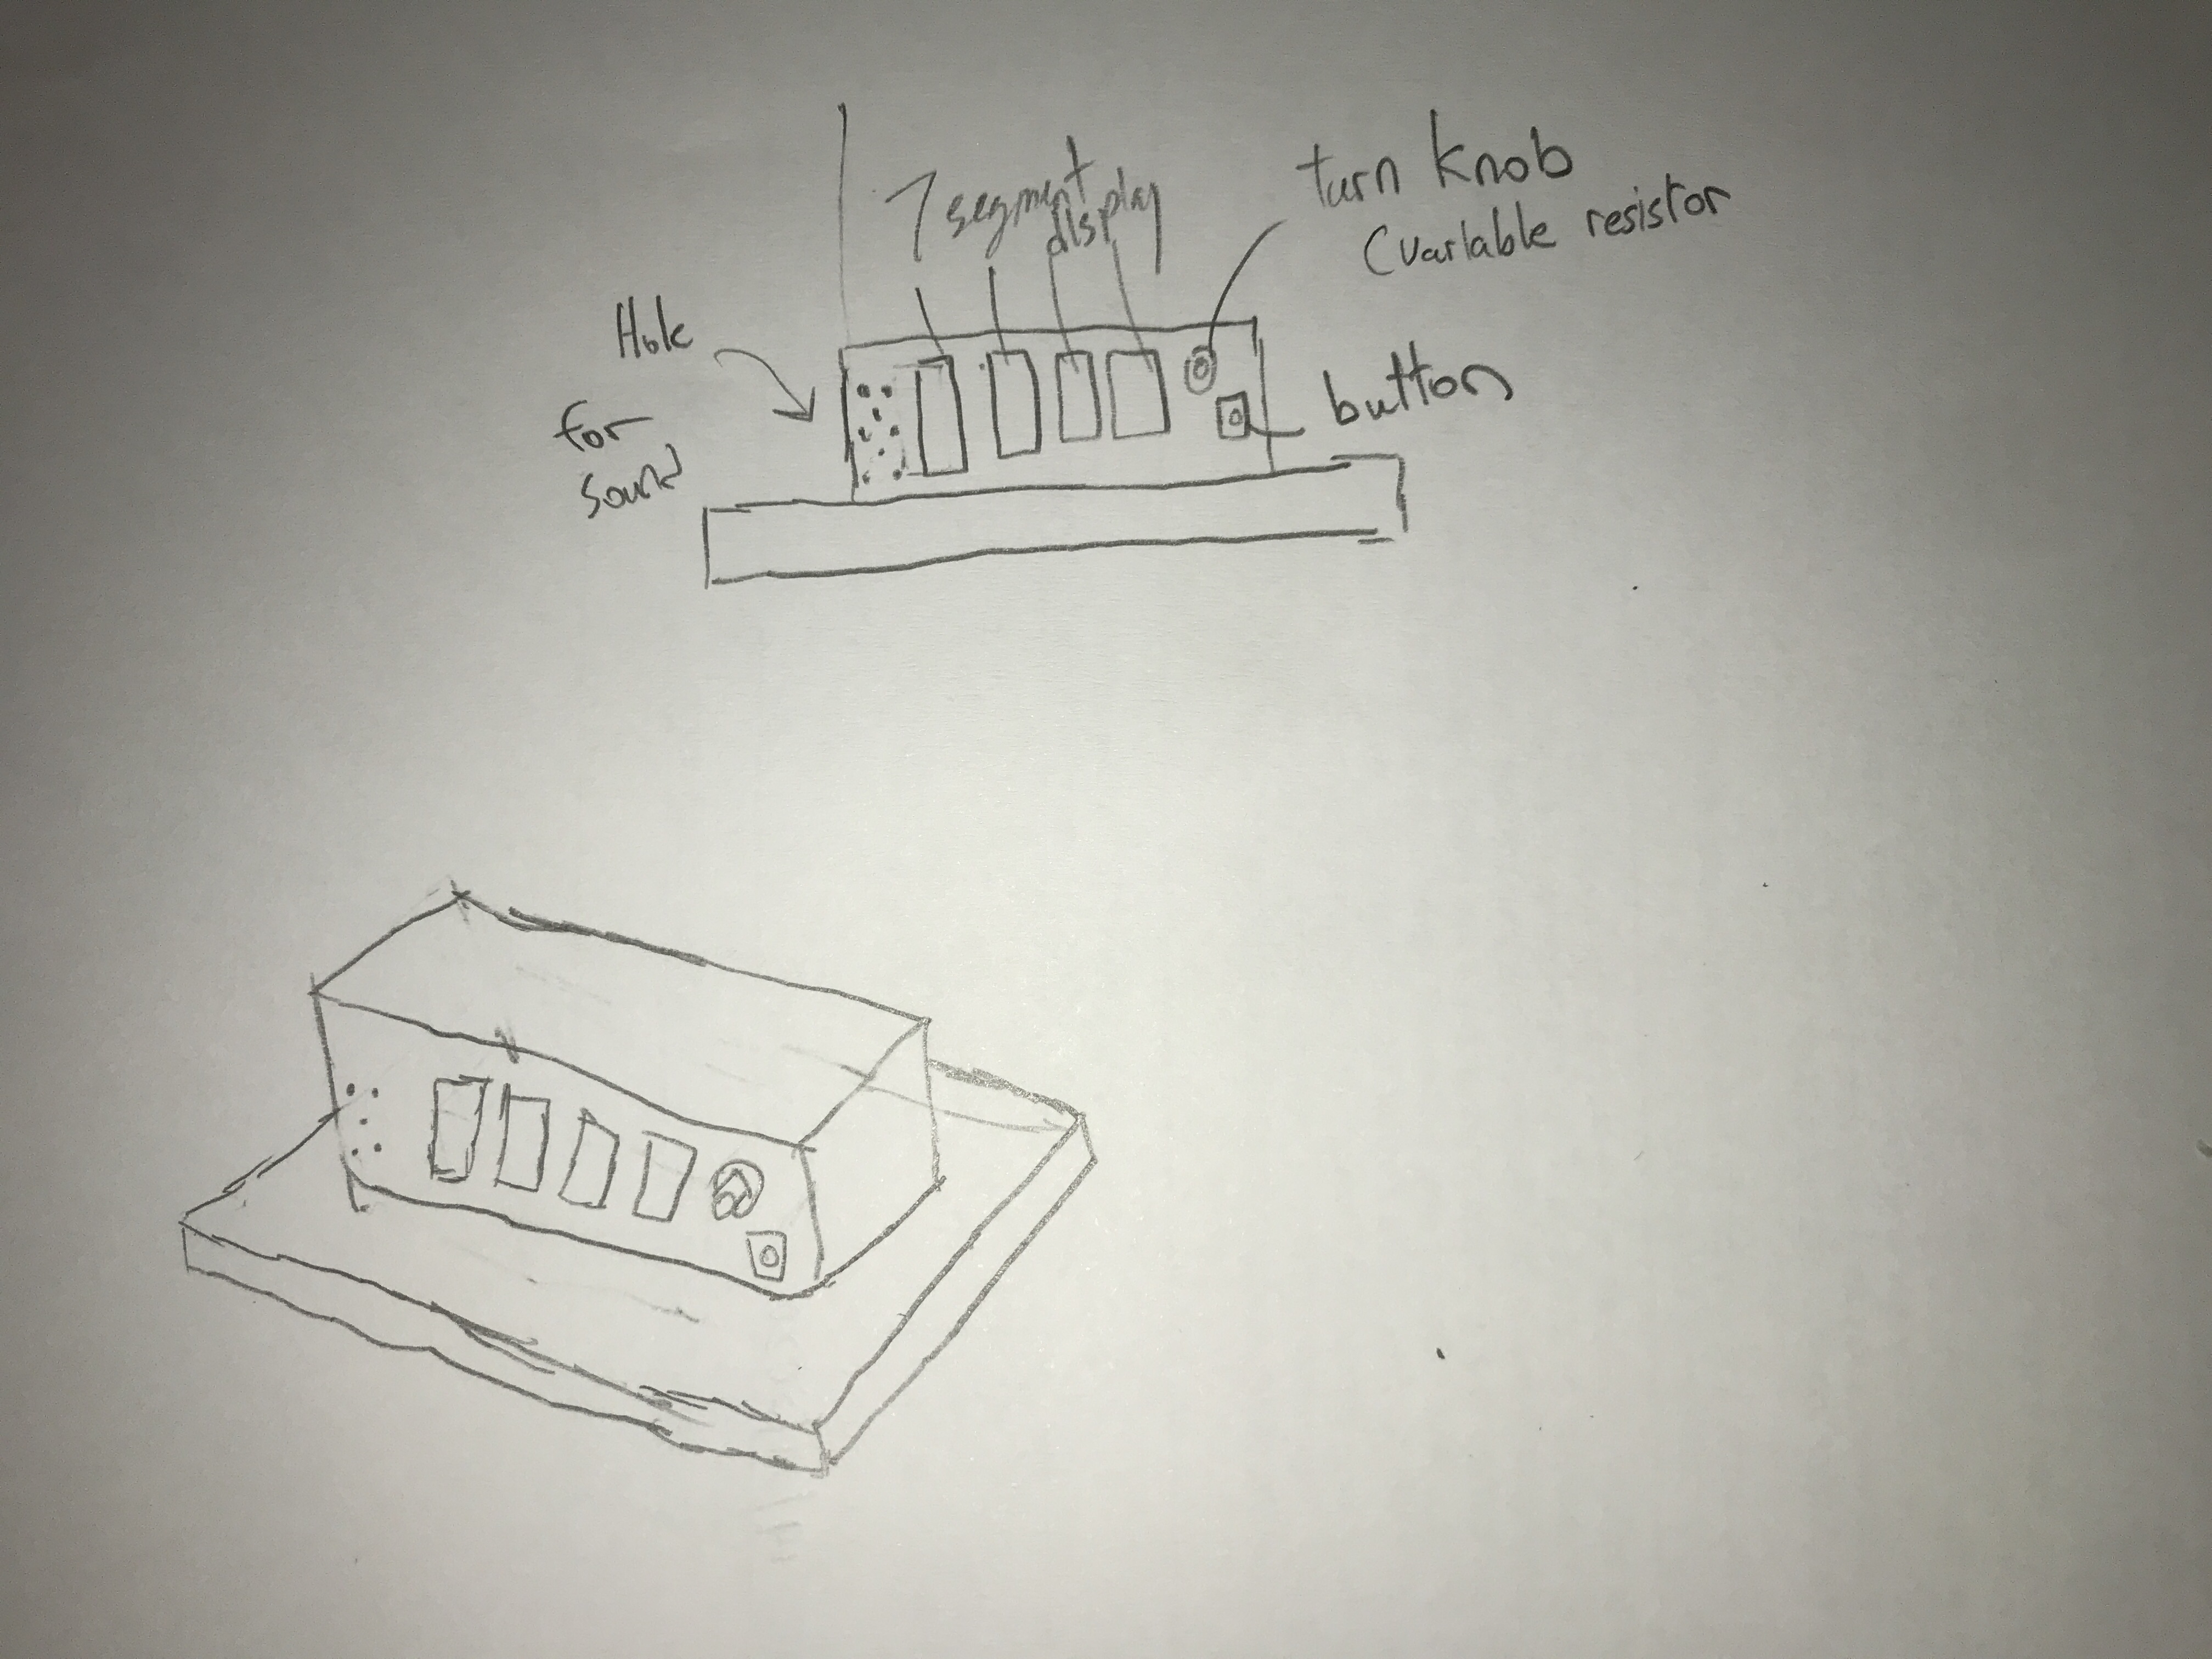 7 segment
display
turn knob
(variable resistor
Hole
for
sound
button